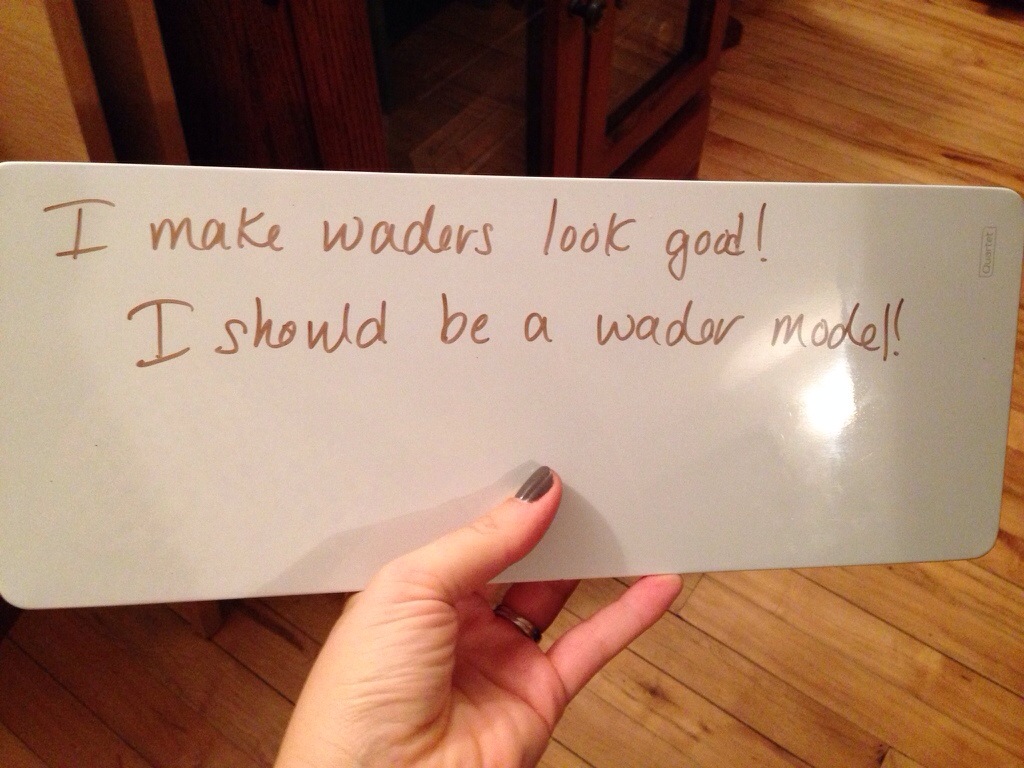 I make waders look good!
I should be a wader model!
Quartet